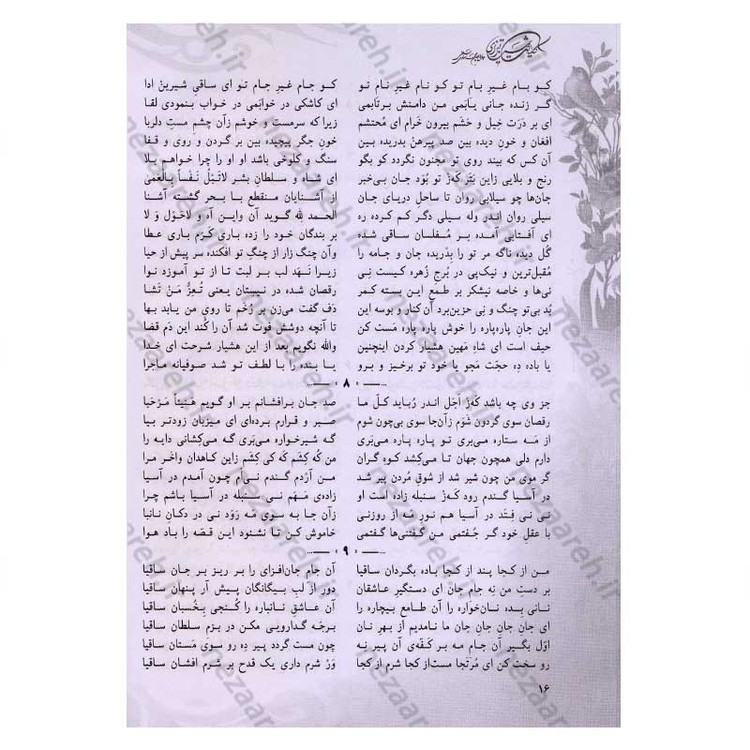 کلیات شمس تبریزی
کو بام غیر بام تو کو نام غیر نام تو کو جام غیر جام تو ای ساقی شیرین ادا
گر زنده جانی یابمی من دامنش برتابمی ای کاشکی در خوابمی در خواب بنمودی لقا
ای بر درت خیل و حشم بیرون خرام ای محتشم زیرا که سرمست و خوشم زان چشم مست دلربا
افغان و خون دیده بین صد پیرهن بدریده بین خون جگر پیچیده بین بر گردن و روی و قفا
آن کس که بیند روی تو مجنون نگردد کو بگو سنگ و کلوخی باشد او او را چرا خواهم بلا
رنج و بلایی زاین بتر کز تو بود جان بی‌خبر ای شاه و سلطان بشر لاتبل نفساً بالعمی
جان‌ها چو سیلابی روان تا ساحل دریای جان از آشنایان منقطع با بحر گشته آشنا
سیلی روان اندر وله سیلی دگر گم کرده ره الحمد لله گوید آن واین آه و لاحول و لا
ای آفتابی آمده بر مفلسان ساقی شده بر بندگان خود را زده باری کرم باری عطا
گل دیده ناگه مر تو را بدریده جان و جامه را وآن چنگ زار از چنگ تو افکنده سر پیش از حیا
مقبل‌ترین و نیک‌پی در برج زهره کیست نی زیرا نهد لب بر لبت تا از تو آموزد نوا
نی‌ها و خاصه نیشکر بر طمع این بسته کمر رقصان شده در نیستان یعنی تعز من تشا
بد بی‌تو چنگ و نی حزین‌برد آن کنار و بوسه این دف گفت می‌زن بر رخم تا روی من یابد بها
این جان پاره‌پاره را خوش پاره پاره مست کن تا آنچه دوشش فوت شد آن را کند این دم قضا
حیف است ای شاه مهین هشیار کردن اینچنین والله نگویم بعد از این هشیار شرحت ای خدا
یا باده ده حجت مجو یا خود تو برخیز و برو یا بنده را با لطف تو شد صوفیانه ماجرا
۸
جز وی چه باشد کز اجل اندر رباید کل ما صد جان برافشانم بر او گویم هنیئاً مرحبا
رقصان سوی گردون شوم زآن‌جا سوی بی‌چون شوم صبر و قرارم برده‌ای ای میزبان زودتر بیا
از مه ستاره می‌بری تو پاره پاره می‌بری گه شیرخواره می‌بری گه می‌کشانی دایه را
دارم دلی همچون جهان تا می‌کشد کوه گران من که کشم که کی کشم زاین کاهدان واخر مرا
گر موی من چون شیر شد از شوق مردن پیر شد من آردم گندم نی‌ام چون آمدم در آسیا
در آسیا گندم رود کز سنبله زاده است او زاده‌ی مهم نی سنبله در آسیا باشم چرا
نی نی فتد در آسیا هم نور مه از روزنی زآن جا به سوی مه رود نی در دکان نانبا
با عقل خود گر جفتمی من گفتنی‌ها گفتمی خاموش کن تا نشنود این قصه را باد هوا
۹
من از کجا پند از کجا باده بگردان ساقیا آن جام جان‌افزای را بر ریز بر جان ساقیا
بر دست من نه جام جان ای دستگیر عاشقان دور از لب بیگانگان پیش آر پنهان ساقیا
نانی بده نان‌خواره را آن طامع بیچاره را آن عاشق نانباره را کنجی بخسبان ساقیا
ای جان جان جان جان ما نامدیم از بهر نان برجه گدارویی مکن در بزم سلطان ساقیا
اول بگیر آن جام مه بر کفه‌ی آن پیر نه چون مست گردد پیر ده رو سوی مستان ساقیا
رو سخت کن ای مرتجا مست‌از کجا شرم از کجا ور شرم داری یک قدح بر شرم افشان ساقیا
۱۶
nezaareh.ir